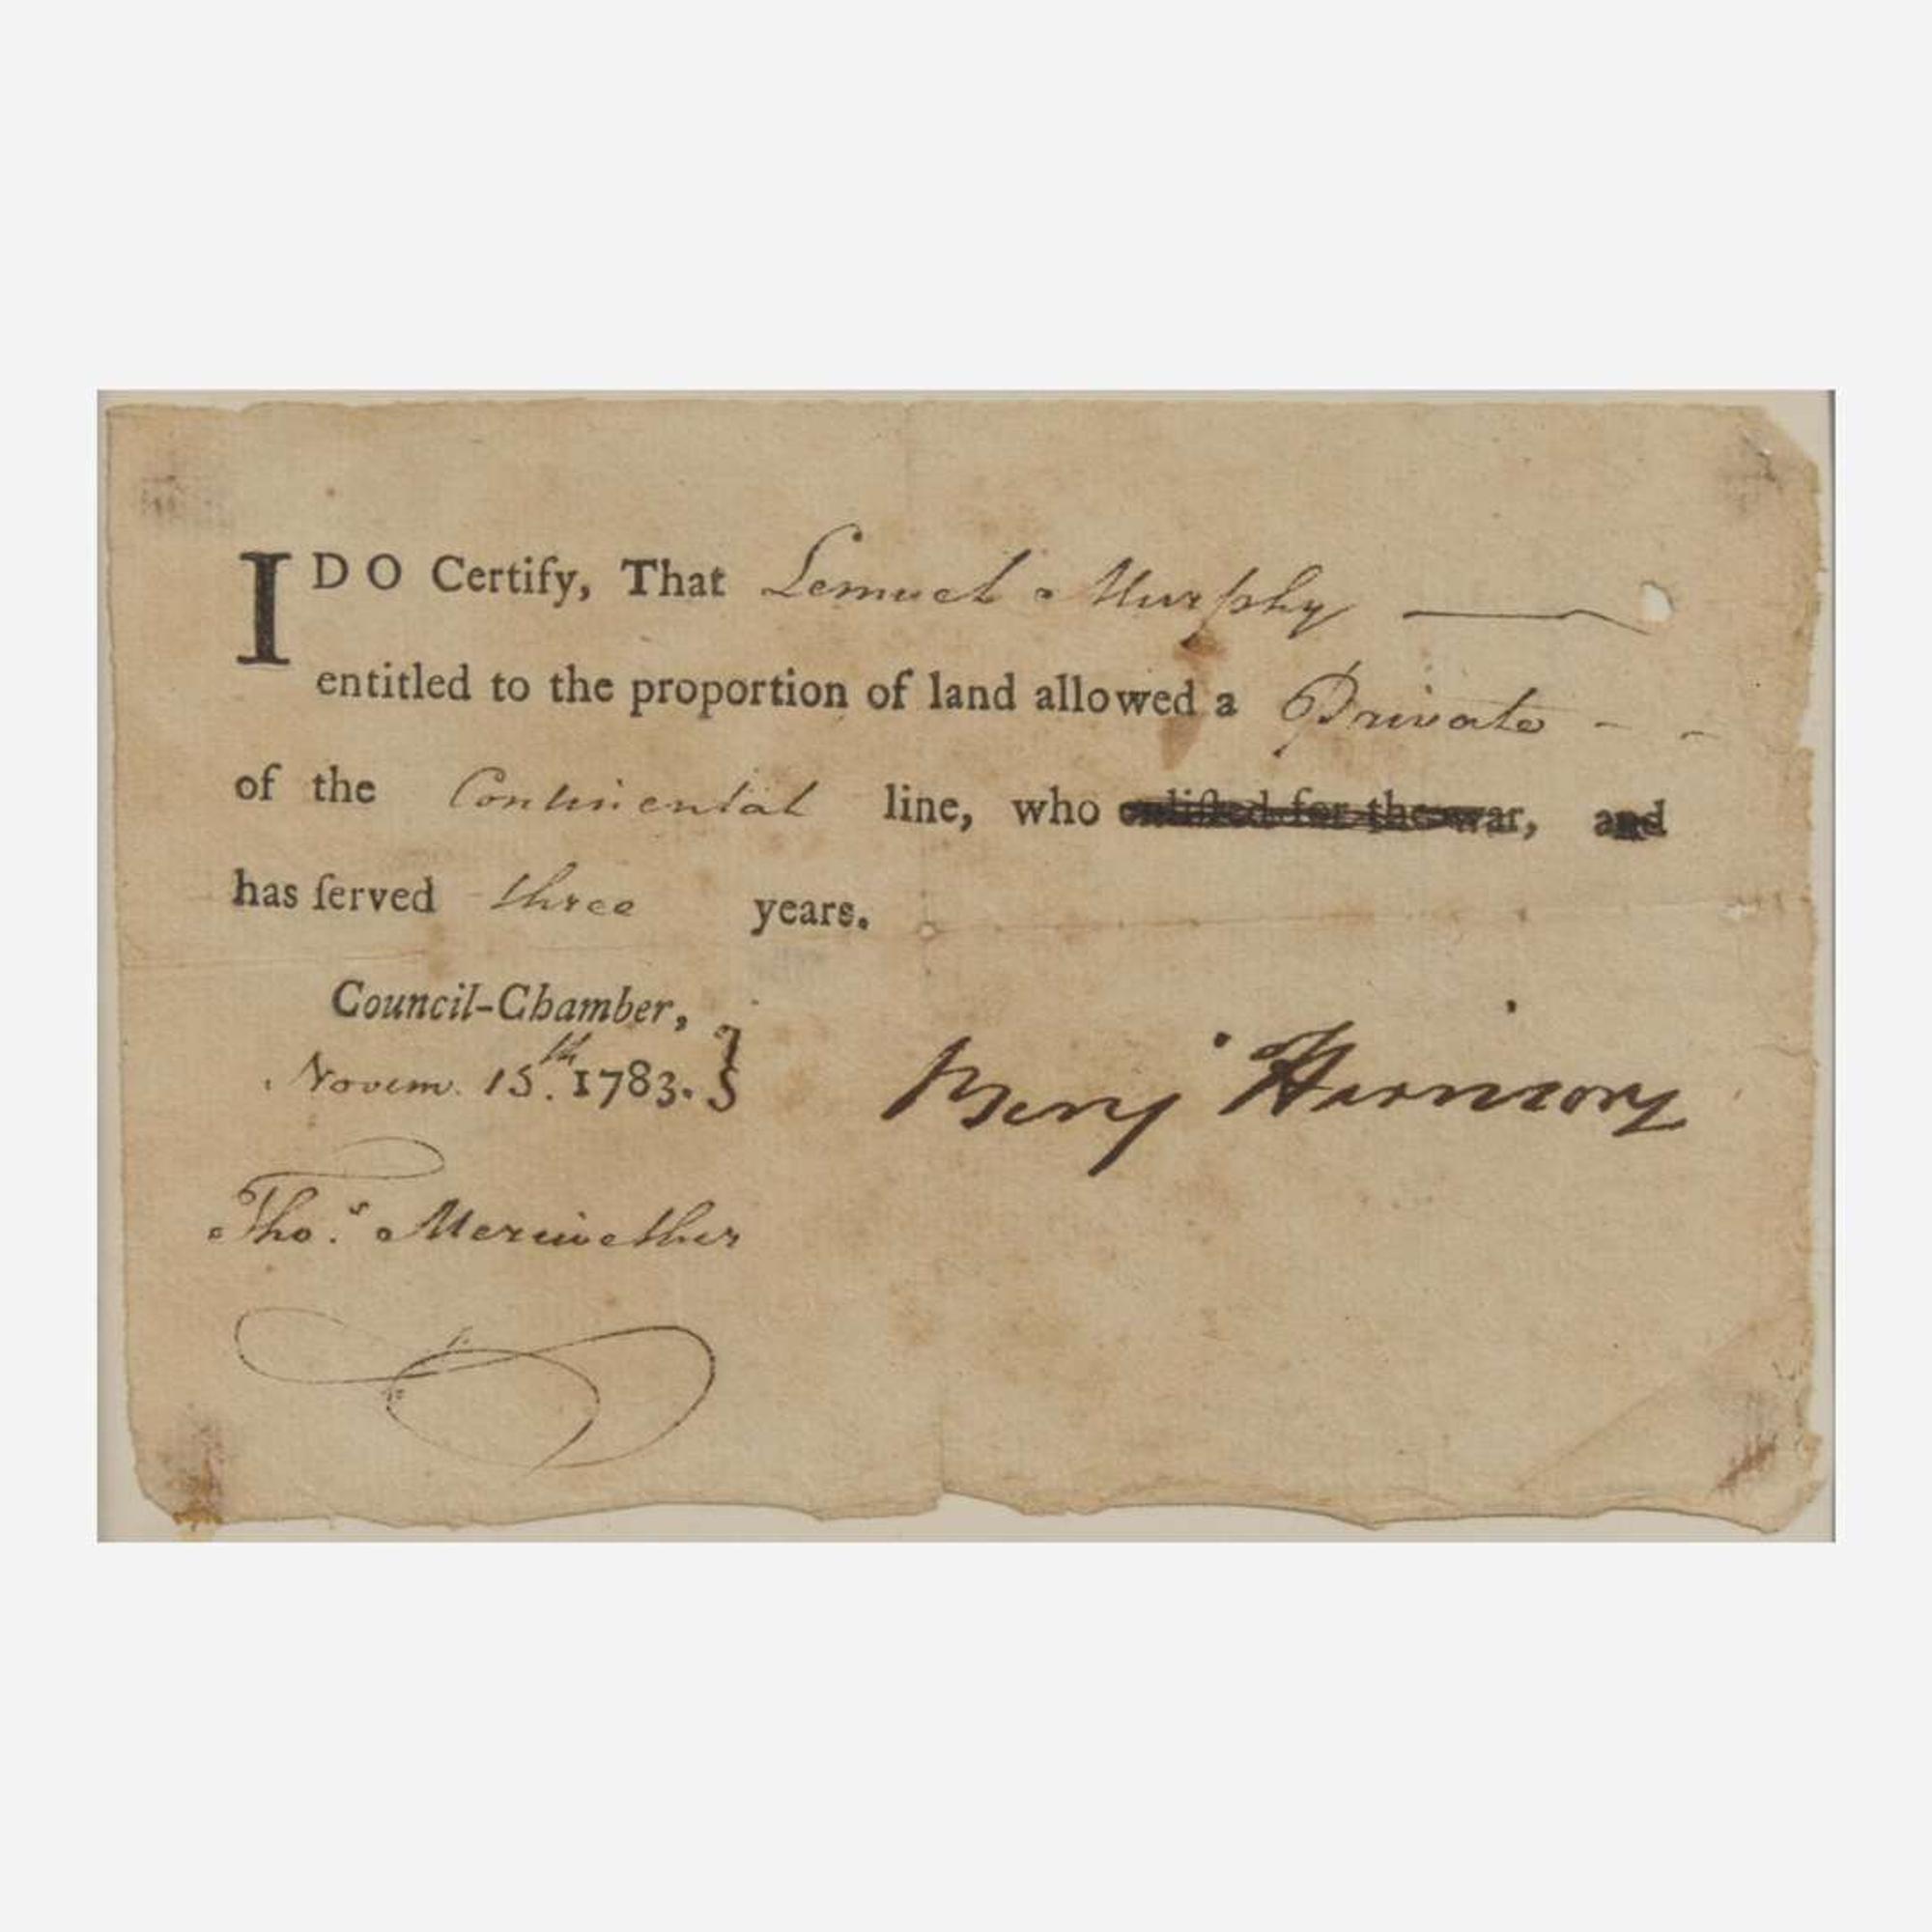 I DO Certify, That Lemuel Murphy
entitled to the proportion of land allowed a Private - -
of the Continental line, who enliſted for the war, and
has ſerved three years.
Council-Chamber,
Novem. 15.th 1783.
Benj Harrison
Tho.s Meriwether